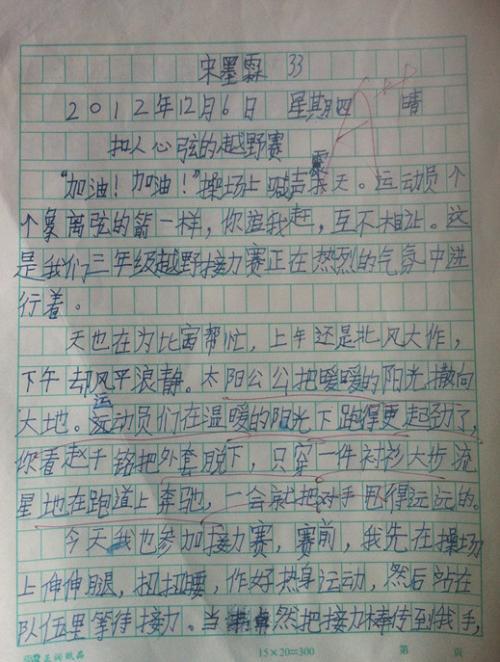 宋墨霖 33
2012年12月6日 星期四 晴
扣人心弦的越野赛
“加油！加油！”操场上喊声震天。运动员个
个象离弦的箭一样，你追我赶，互不相让。这
是我们三年级越野接力赛正在热烈的气氛中进
行着。
天也在为比赛帮忙，上午还是北风大作，
下午却风平浪静。太阳公公把暖暖的阳光撒向
大地。运动员们在温暖的阳光下跑得更起劲了，
你看赵千铭把外套脱下，只穿一件衬衫大步流
星地在跑道上奔驰，一会就把对手甩得远远的。
今天我也参加接力赛，赛前，我先在操场
上伸伸腿，扭扭腰，作好热身运动，然后站在
队伍里等待接力。当 然把接力棒传到我手，
15×20=300 第 页